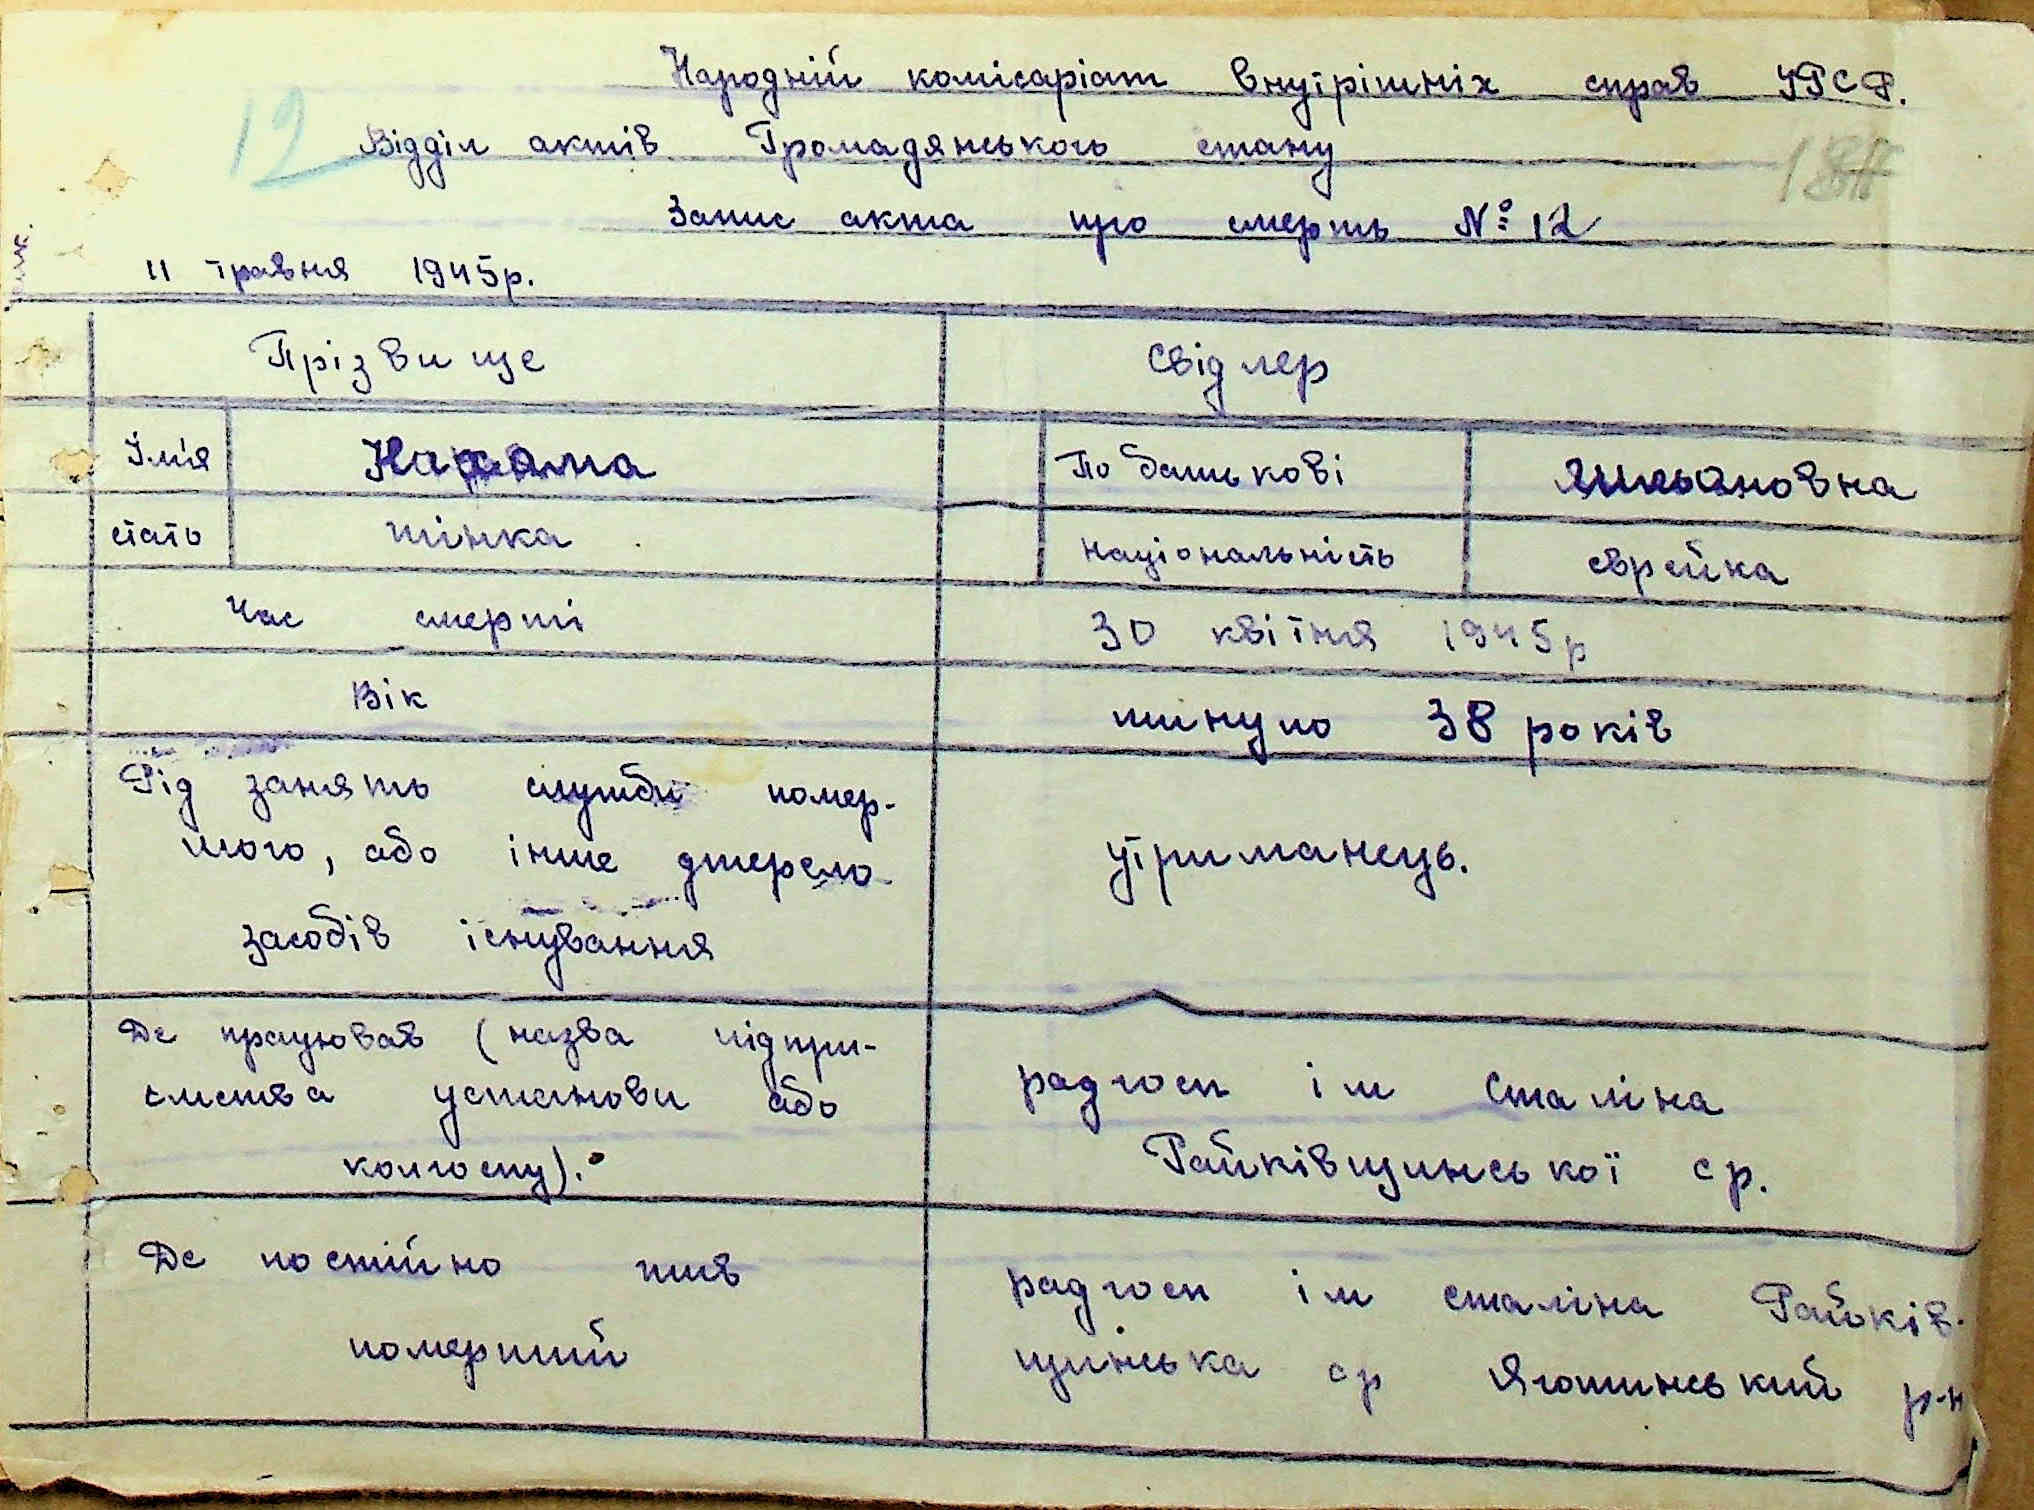 12
Народній комісаріат внутрішніх справ УРСР.
Відділ актів Громадянського стану
Запис акта про смерть №12
11 травня 1945р.
Прізвище Свідлер
Ім'я По батькові
стать жінка національність єврейка
Час смерті 30 квітня 1945р
Вік минуло 38 років
Рід занять служби помер-
шого, або інше джерело
засобів існування
утриманець.
Де працював (назва підпри-
ємства установи або
колгоспу).
радгосп ім Сталіна
Райківщинської ср.
Де постійно жив
померший
радгосп ім сталіна Райків-
щинська ср Яготинський р-н